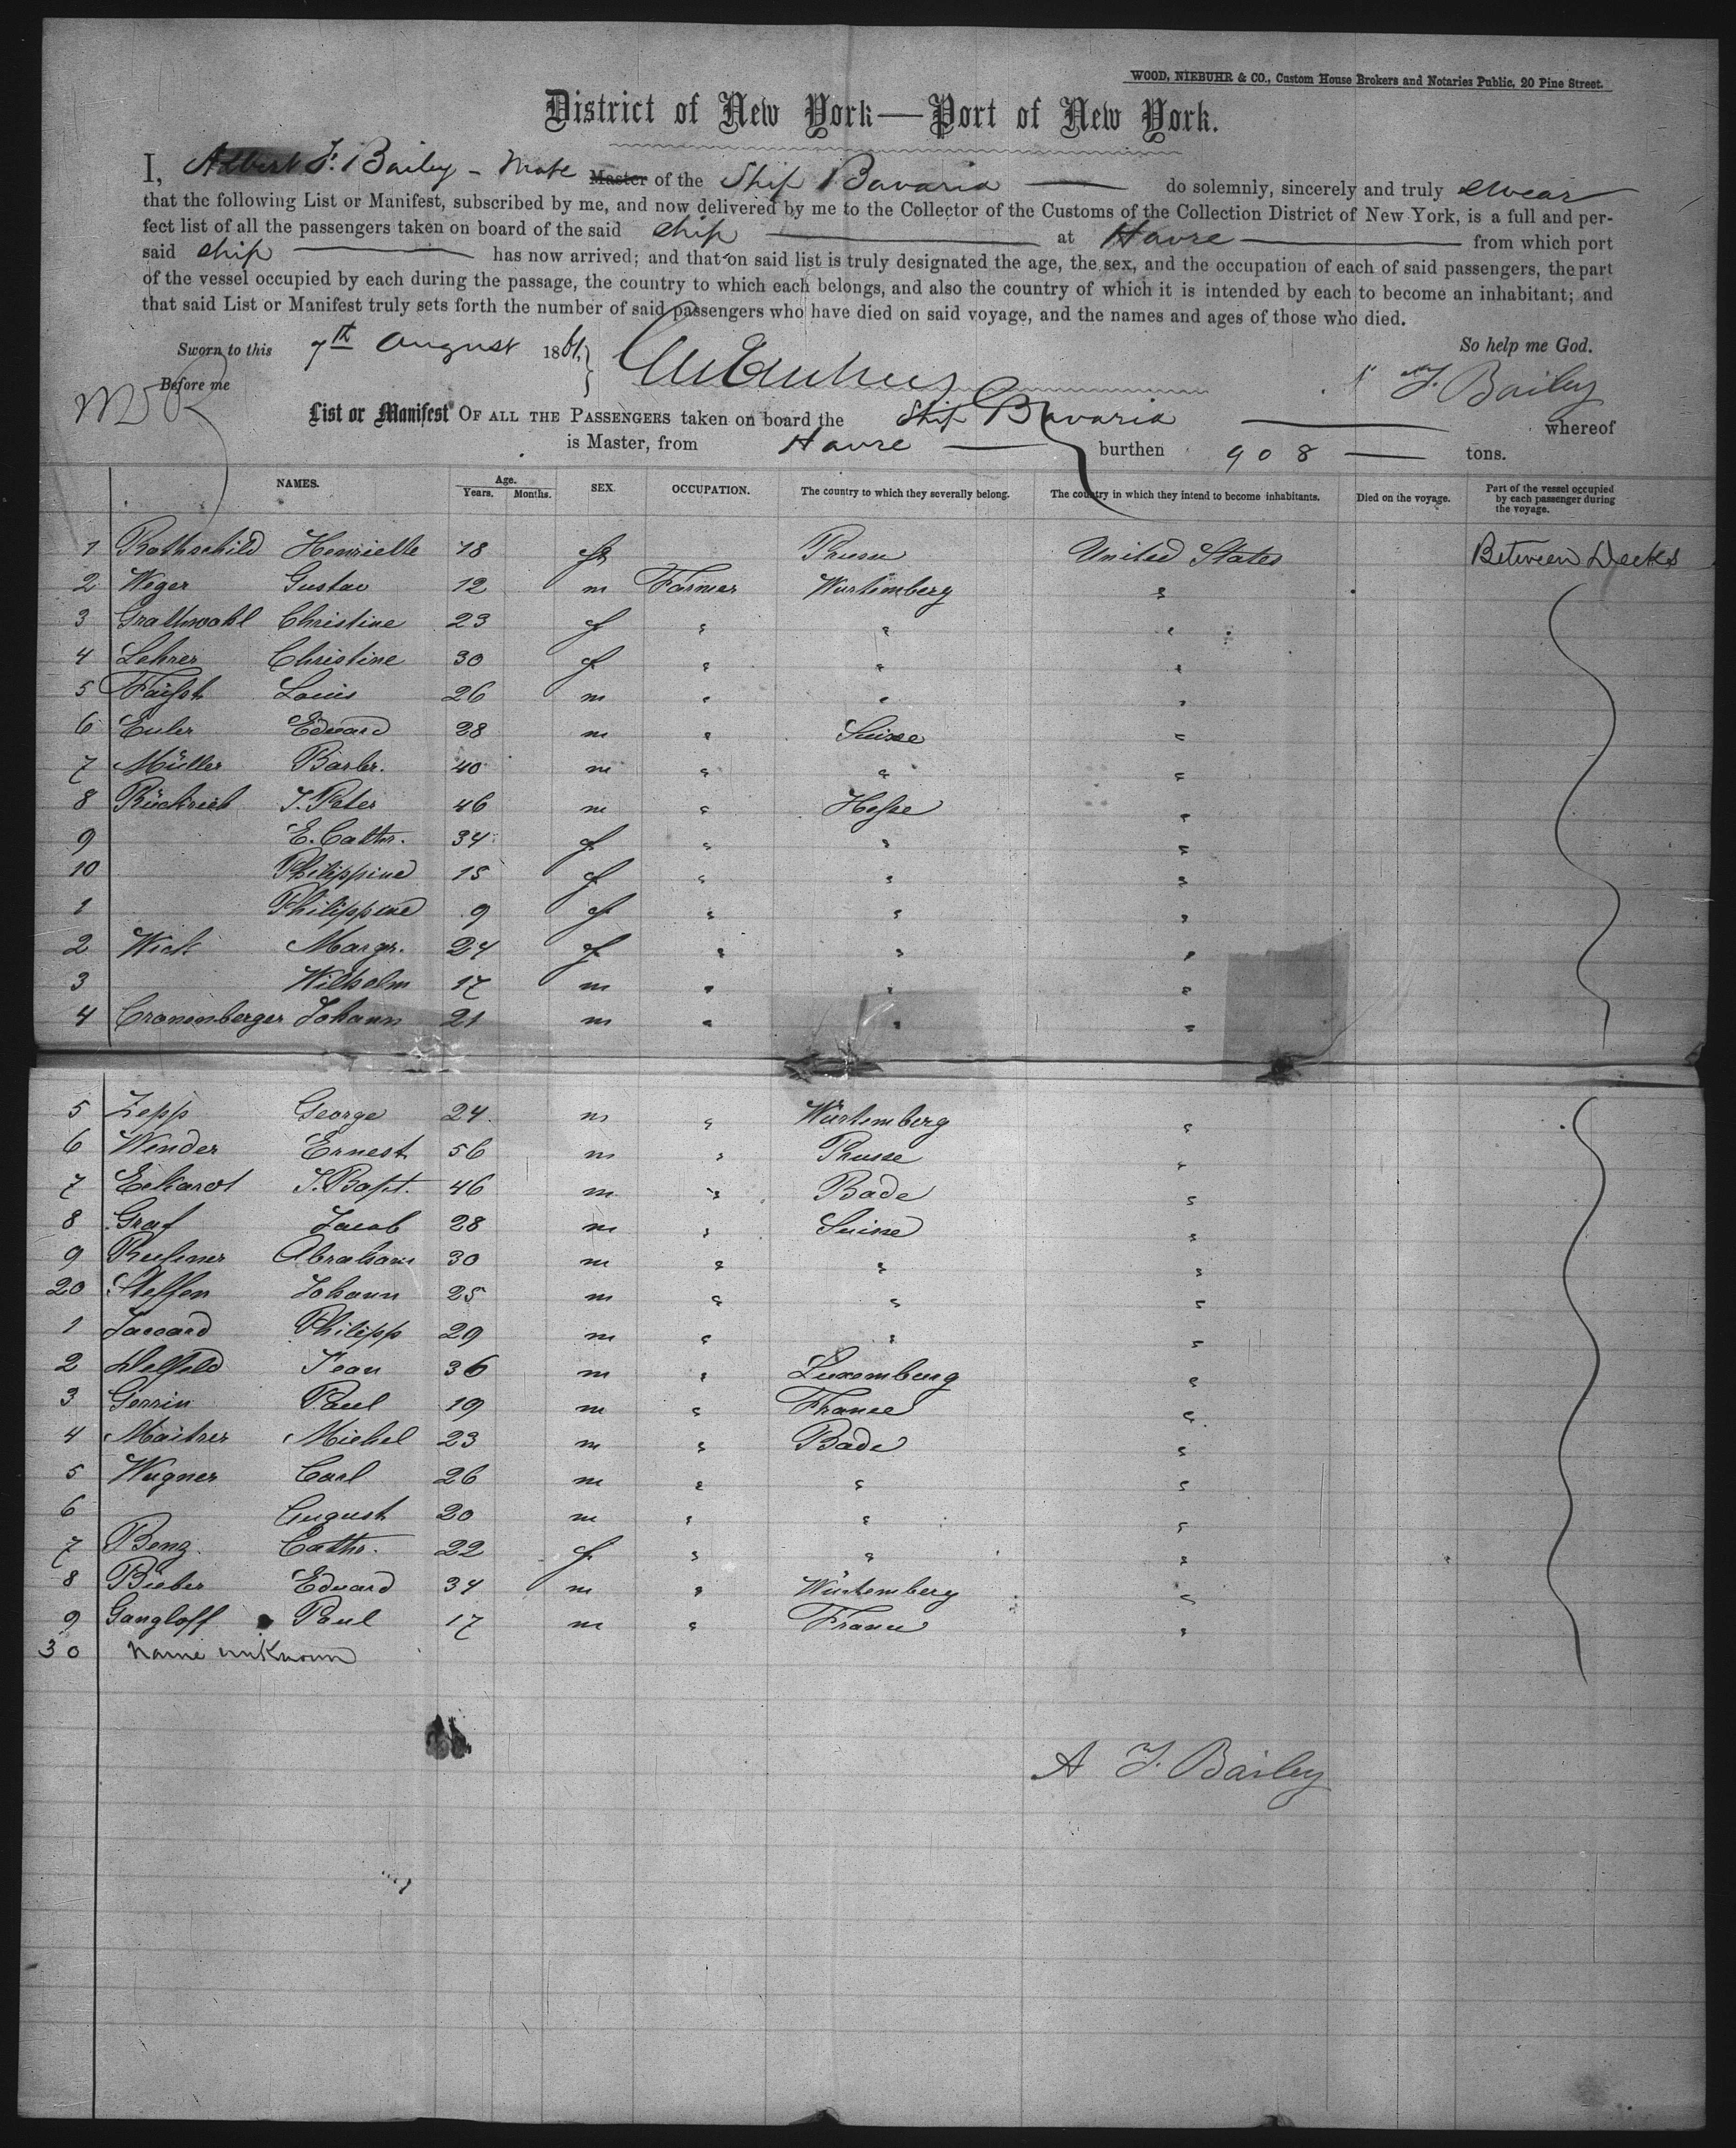 WOOD, NIEBUHR & CO., Custom House Brokers and Notaries Public, 20 Pine Street.
District of New York—Port of New York.
I, Albert F. Bailey - Mate Master of the Ship Bavaria do solemnly, sincerely and truly swear
that the following List or Manifest, subscribed by me, and now delivered by me to the Collector of the Customs of the Collection District of New York, is a full and per-
fect list of all the passengers taken on board of the said ship at Havre from which port
said ship has now arrived; and that on said list is truly designated the age, the sex, and the occupation of each of said passengers, the part
of the vessel occupied by each during the passage, the country to which each belongs, and also the country of which it is intended by each to become an inhabitant; and
that said List or Manifest truly sets forth the number of said passengers who have died on said voyage, and the names and ages of those who died.
Sworn to this 7th August 1861, So help me God.
Before me F. Bailey
List or Manifest OF ALL THE PASSENGERS taken on board the Ship Bavaria whereof
is Master, from Havre burthen 908 tons.
NAMES. Age. Years. Months. SEX. OCCUPATION. The country to which they severally belong. The country in which they intend to become inhabitants. Died on the voyage. Part of the vessel occupied by each passenger during the voyage.
1 Rothschild Henrielle 18 f United States Between Decks
2 Weger Gustav 12 m Farmer Wurtemberg "
3 Grathwohl Christine 23 f " " "
4 Lehrer Christine 30 f " " "
5 Louis 26 m " " "
6 Euler Edward 28 m " Suisse "
7 Müller Barbr. 40 m " " "
8 J. Peter 46 m " Hesse "
9 E. Cathr. 34 f " " "
10 Philippine 15 f " " "
1 Philippine 9 f " " "
2 Wick Margr. 24 f " " "
3 Wilhelm 17 m " " "
4 Cronenberger Johann 21 m " " "
5 Zepp George 24 m " Würtemberg "
6 Winder Ernest 56 m " Prusse "
7 Eckardt J. Bapt. 46 m " Bade "
8 Graf Jacob 28 m " Suisse "
9 Abraham 30 m " " "
20 Steffen Johann 25 m " " "
1 Jaccard Philipp 29 m " " "
2 Delfeld Jean 36 m " Luxemburg "
3 Gerrin Paul 19 m " France "
4 Maitrer Michel 23 m " Bade "
5 Wagner Carl 26 m " " "
6 August 20 m " " "
7 Benz Cathr. 22 f " " "
8 Bieber Edward 34 m " Würtemberg "
9 Gangloff Paul 17 m " France "
30 Name unknown
A F. Bailey